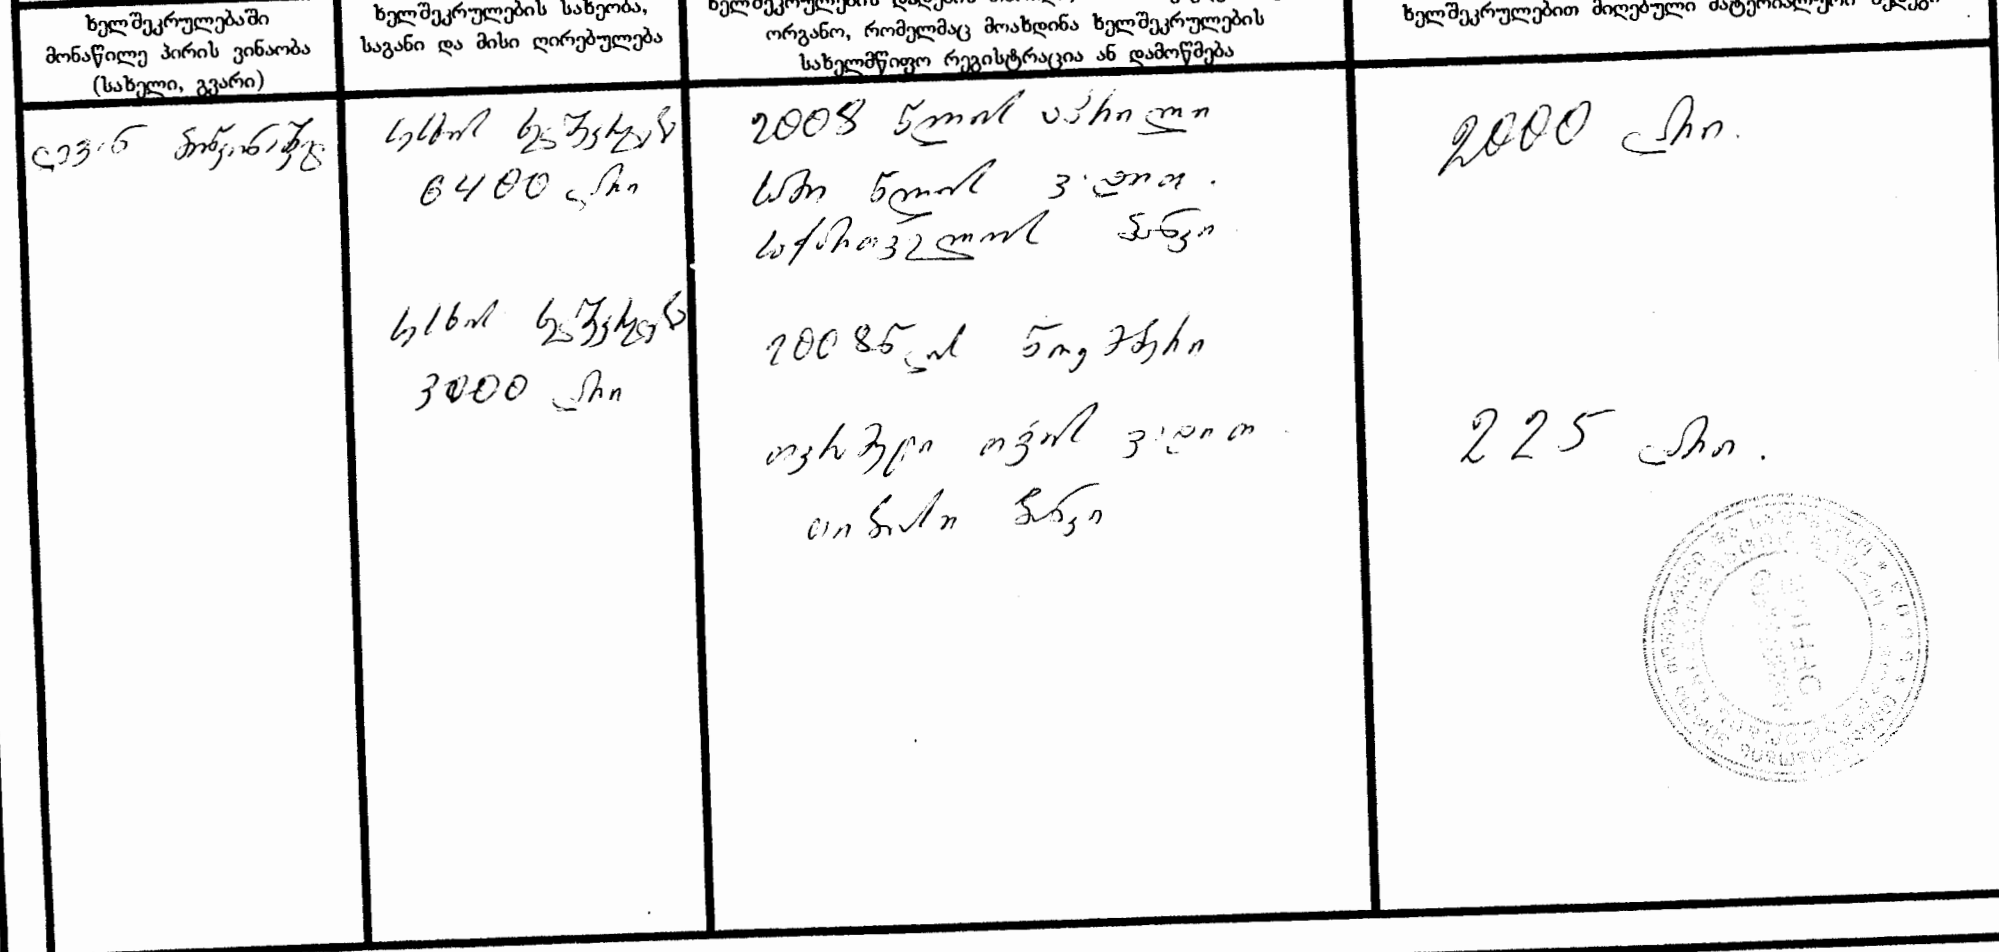 ხელშეკრულებაში
მონაწილე პირის ვინაობა
(სახელი, გვარი)
ხელშეკრულების სახეობა,
საგანი და მისი ღირებულება
ხელშეკრულების დადების
ორგანო, რომელმაც მოახდინა ხელშეკრულების
სახელმწიფო რეგისტრაცია ან დამოწმება
ხელშეკრულებით მიღებული მატერიალური შედეგი
ლევან
სესხის ხელშეკრულება
6400 ლარი
2008 წლის აპრილი
სამი წლის ვადით.
საქართველოს ბანკი
2000 ლარი.
სესხის ხელშეკრულება
3000 ლარი
2008 წლის ნოემბერი
თვრამეტი თვის ვადით
თიბისი ბანკი
225 ლარი.